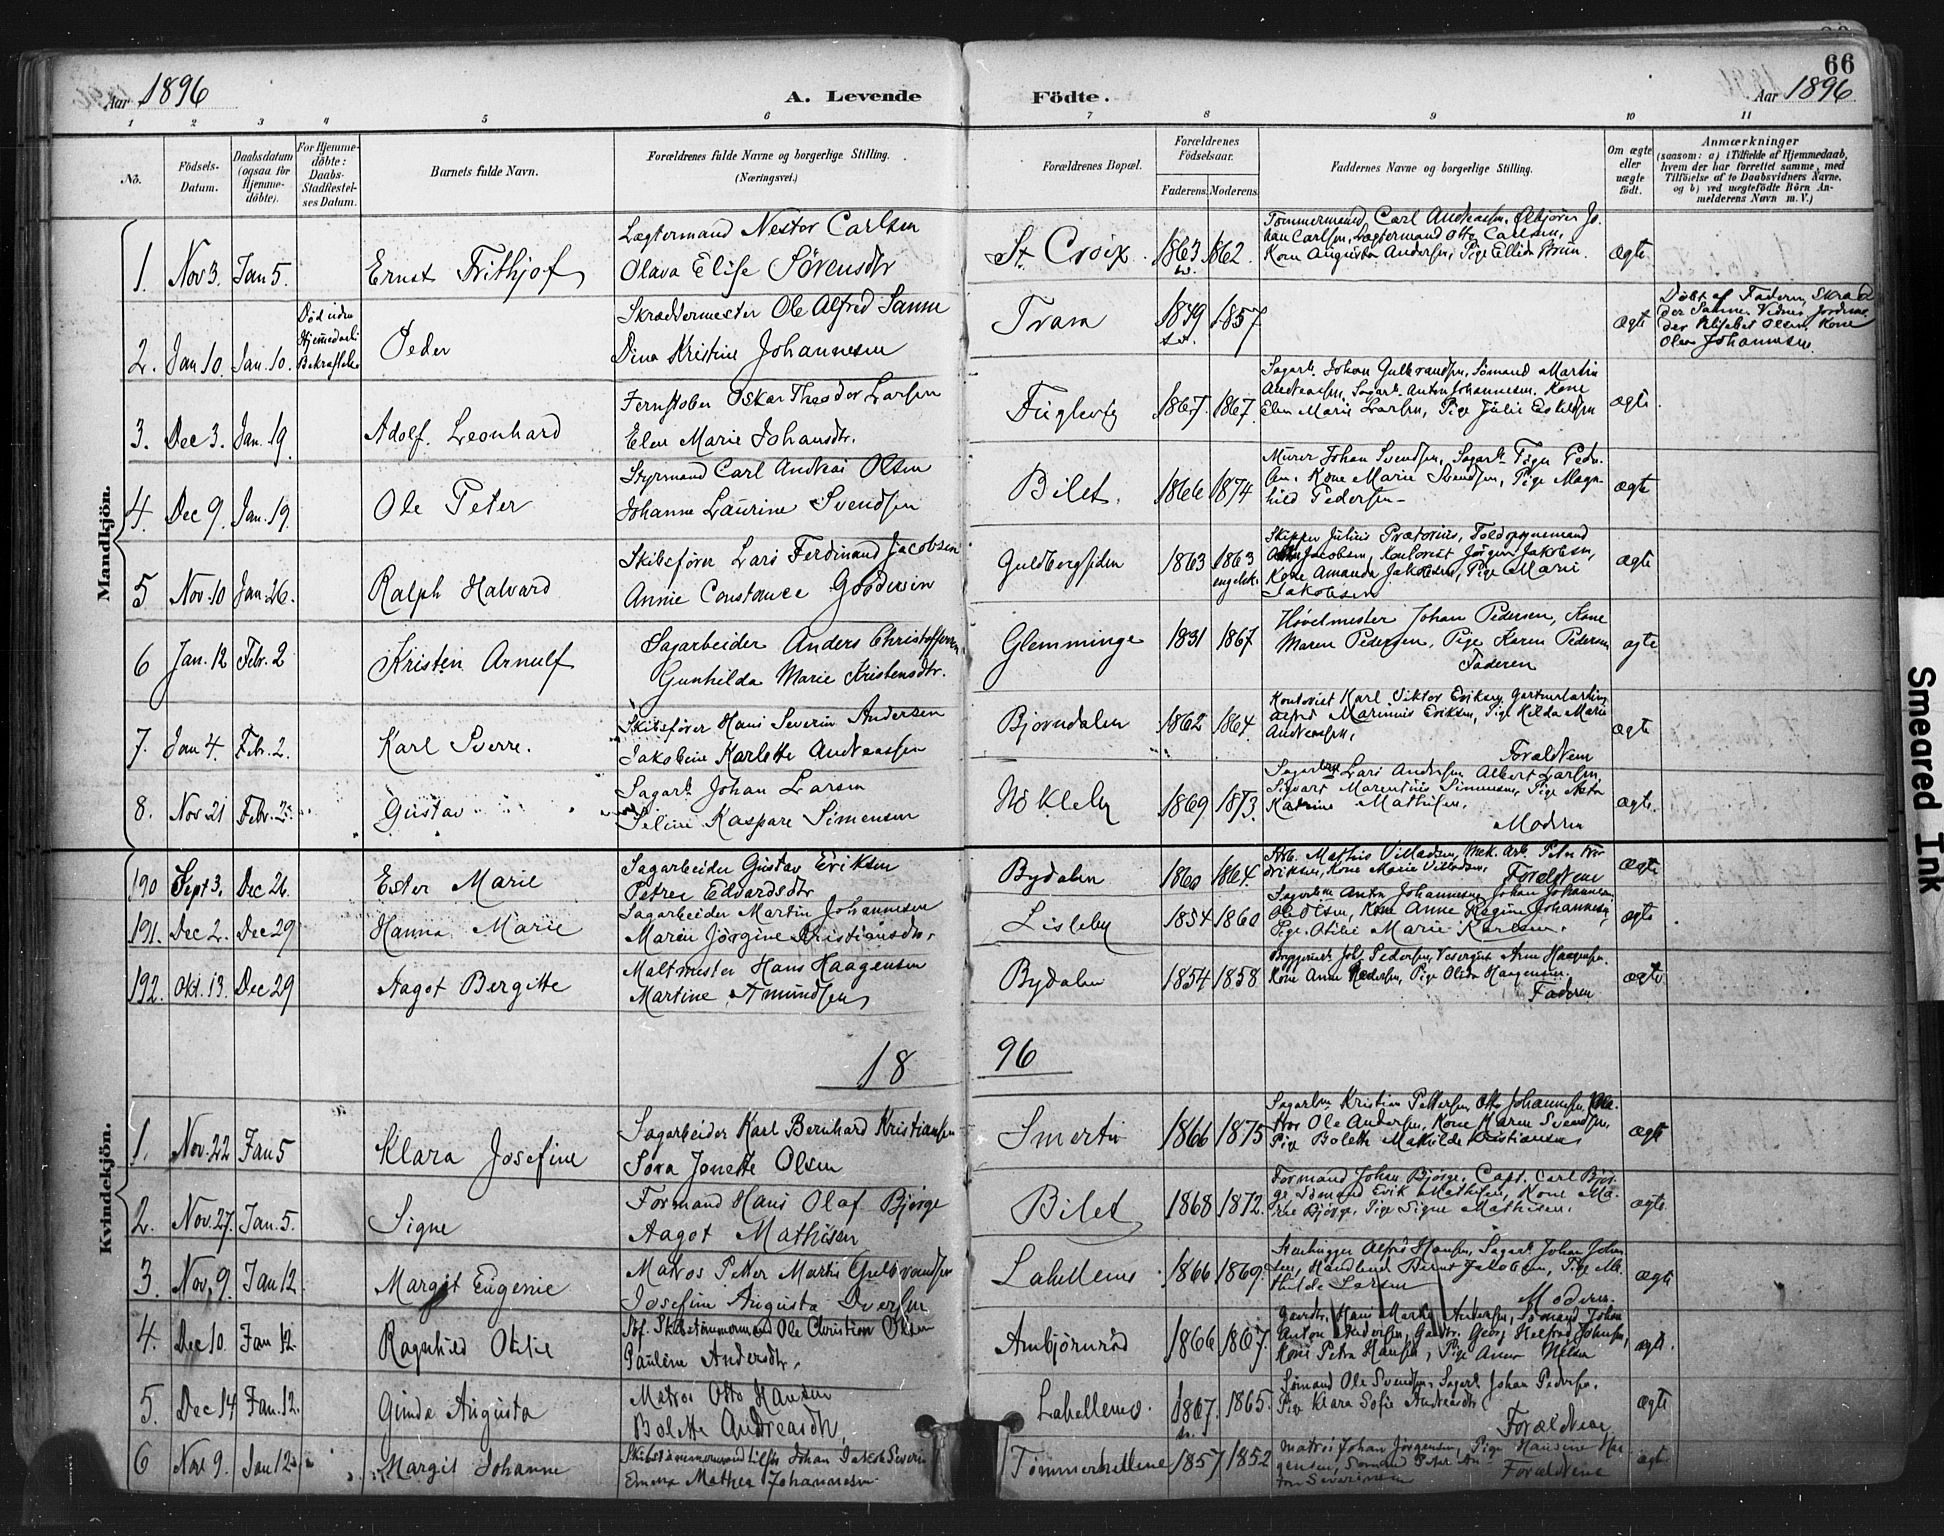 66
Aar 1896
A. Levende Födte.
Aar 1896
1 2 3 4 5 6 7 8 9 10 11
No.
Födsels-Datum.
Daabsdatum (ogsaa for Hjemme-döbte).
For Hjemme-döbte: Daabs-Stadfæstel-ses Datum.
Barnets fulde Navn.
Forældrenes fulde Navne og borgerlige Stilling. (Næringsvei.)
Forældrenes Bopæl.
Forældrenes Födselsaar.
Faderens. Moderens.
Faddernes Navne og borgerlige Stilling.
Om ægte eller uægte födt.
Anmærkninger
(saasom: a) i Tilfælde af Hjemmedaab, hvem der har forrettet samme, med Tilföielse af to Daabsvidners Navne, og b) ved uægtefödte Börn An-melderens Navn m. V.)
Mandkjön.
Lægtermand Nestor Carlsen
Tømmermand Carl Andreassen, Ølkjører Jo-
han Carlsen, Lægtermand Otto Carlsen,
1. Nov 3. Jan 5. Ernst Frithjof Olava Elise Sörensdtr St. Croix. 1863 1862. Kone Augusta Andersen, Pige Ellida Bruun. ægte
Skræddermester Ole Alfred Sanne
Döbt af Faderen, Skræd
der Sanne. Vidner Jordmo
der Elisabet Olsen, Kone
Olava Johannesen.
2. Jan 10. Jan. 10. Peder Dina Kristine Johannesen Trara 1849 1857 ægte
Oskar Theodor Larsen
Sagarb. Johan Gulbrandsen, Sömand Martin
Andreassen, Sagarb. Anton Johannesen, Kone
3. Dec 3. Jan. 19. Adolf Leonhard Elen Marie Johansdtr. Fuglevig 1867. 1867. Elen Marie Larsen, Pige Julie Eskildsen ægte
Styrmand Carl Andreas Olsen
Murer Johan Svendsen, Sagarb.
Kone Marie Svendsen, Pige Magn-
4. Dec 9. Jan. 19. Ole Peter Johanne Laurine Svendsen Bilet. 1866 1874 hild Pedersen ægte
Skibsfører Lars Ferdinand Jacobsen
Skipper Julius Prætorius, Toldopsynsmand
Jacobsen, Kontorist Jörgen Jakobsen,
5 Nov. 10 Jan. 26. Ralph Halvard Annie Constance Goodwin Guldbergsiden 1863 1863 engelsk. Kone Amanda Jakobsen, Pige Marie
Jakobsen ægte
Sagarbeider Anders Christoffersen
Høvelmester Johan Pedersen, Kone
6 Jan. 12 Febr. 2 Kristen Arnulf Gunhilda Marie Kristensdtr. Glemminge 1831 1867 Maren Pedersen, Pige Karen Pedersen
Faderen ægte
Skibsfører Hans Severin Andersen
Kontorist Karl Viktor Eriksen,
Marinius Eriksen, Pige Hilda Marie
7. Jan 4. Febr. 2. Karl Sverre. Jakobine Karlette Andreassen Bjørndalen 1862 1864. Andreassen.
Forældrene ægte
Sagarb. Johan Larsen
Lars Andersen, Albert Larsen,
Sigvart Marentius Simensen, Pige
8. Nov 21 Febr. 2. Gustav Seline Kaspare Simensen Nökleby 1869 1873. Katrine Mathisen.
Moderen ægte.
Kvindekjön.
Sagarbeider Gustav Eriksen
Arb. Mathis Villadsen, Mek. Arb. Peter Fre-
190 Sept 3. Dec 26. Ester Marie Petrea Edvardsdtr Bydalen 1860 1864. driksen, Kone Marie Villadsen. Forældrene ægte
Sagarbeider Martin Johannesen
Anton Johannesen, Johan Johannesen
191. Dec 2. Dec 29 Hanna Marie Maren Jörgine Kristiansdtr. Lisleby 1854 1860 Ole Olsen, Kone Anne Regine Johannesen,
Pige Otilie Marie Karlsen. ægte
Maltmester Hans Haagensen
Joh. Pedersen, Arne Haagensen.
192. Okt. 13. Dec 29 Aagot Bergitte Martine Amundsen Bydalen 1854 1858 Kone Anne Pedersen, Pige Olida Haagensen.
Faderen ægte
18 96
Sagarbeider Karl Bernhard Kristiansen
Kristian Pettersen, Otto Johannesen,
Ole Andersen, Kone Karen Svendsen,
1. Nov. 22 Jan 5 Klara Josefine Sora Jonette Olsen Smertu 1866 1875 Pige Bolette Mathilde Kristiansen ægte
Formand Hans Olaf Bjørge
Formand Johan Bjørge, Capt. Carl Bjør-
ge, Sömand Erik Mathisen, Kone Ma-
2. Nov. 27. Jan. 5. Signe Aagot Mathisen Bilet 1868 1872. rie Bjørge, Pige Signe Mathisen. ægte
Matros Petter Martin Gulbrandsen
Stenhugger Alfred Hansen, Sagarb. Johan Johan
sen, Handlende Bernt Jakobsen, Pige Ma-
3. Nov. 9. Jan 12. Margit Eugenie Josefine Augusta Iversen Lahellems 1866 1869. thilde Larsen
Moderen. ægte
Skibstømmermand Ole Christian Olsen
Hans Martin Andersen, Sömand Johan
Anton Andersen, Georg Helfred Johnsen,
4. Dec 10. Jan 12. Ragnhild Otilie Pauline Andersdtr. Ambjørnrød 1866 1867. Kone Petra Hansen, Pige Anna Nilsen ægte.
Matros Otto Hansen
Sömand Ole Svendsen, Sagarb. Johan Pedersen,
5. Dec 14 Jan. 12. Ginda Augusta Bolette Andreasdtr. Lahellems. 1867. 1865. Pige Klara Sofie Andreasdtr
Forældrene ægte
Johan Jakob Severin
Matros Johan Jørgensen, Pige Hansine Ha-
6 Nov 9. Jan 12 Margit Johanne Emma Mathea Johannesen Tømmerhellene 1857 1852 gensen, Sömand Peter An
ton Severinsen Forældrene ægte
Smeared Ink